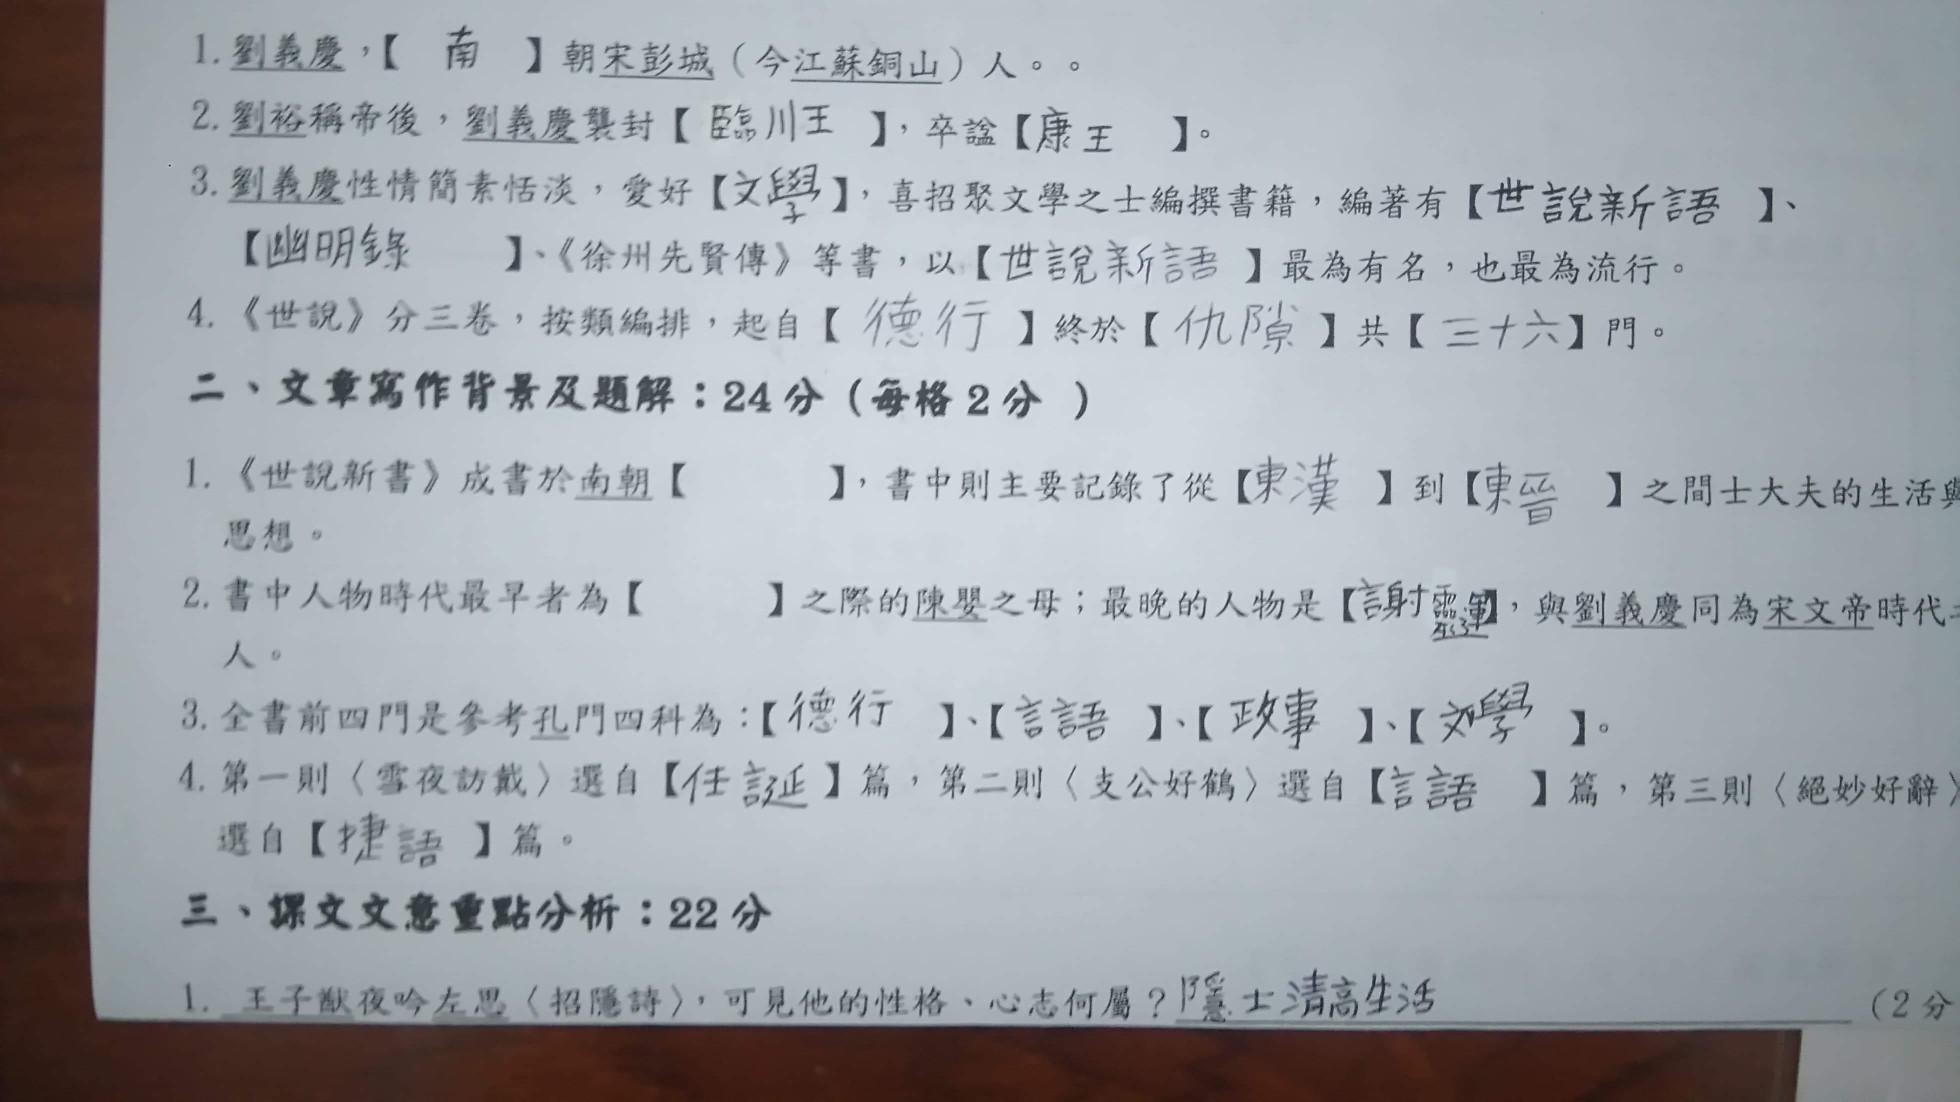 1. 劉義慶，【 南 】朝宋彭城（今江蘇銅山）人。。
2. 劉裕稱帝後，劉義慶襲封【 臨川王 】，卒諡【康王 】。
3. 劉義慶性情簡素恬淡，愛好【文學】，喜招聚文學之士編撰書籍，編著有【世說新語 】、
【幽明錄 】、《徐州先賢傳》等書，以【世說新語 】最為有名，也最為流行。
4. 《世說》分三卷，按類編排，起自【 德行 】終於【 仇隙 】共【 三十六】門。
二、文章寫作背景及題解：24分（每格2分 ）
1. 《世說新書》成書於南朝【 】，書中則主要記錄了從【東漢 】到【東晉 】之間士大夫的生活與
思想。
2. 書中人物時代最早者為【 】之際的陳嬰之母；最晚的人物是【謝靈運】，與劉義慶同為宋文帝時代
人。
3. 全書前四門是參考孔門四科為：【德行 】、【言語 】、【政事 】、【文學 】。
4. 第一則〈雪夜訪戴〉選自【任誕 】篇，第二則〈支公好鶴〉選自【言語 】篇，第三則〈絕妙好辭〉
選自【捷語 】篇。
三、課文文意重點分析：22分
1. 王子猷夜吟左思〈招隱詩〉，可見他的性格、心志何屬？隱士清高生活 （2分